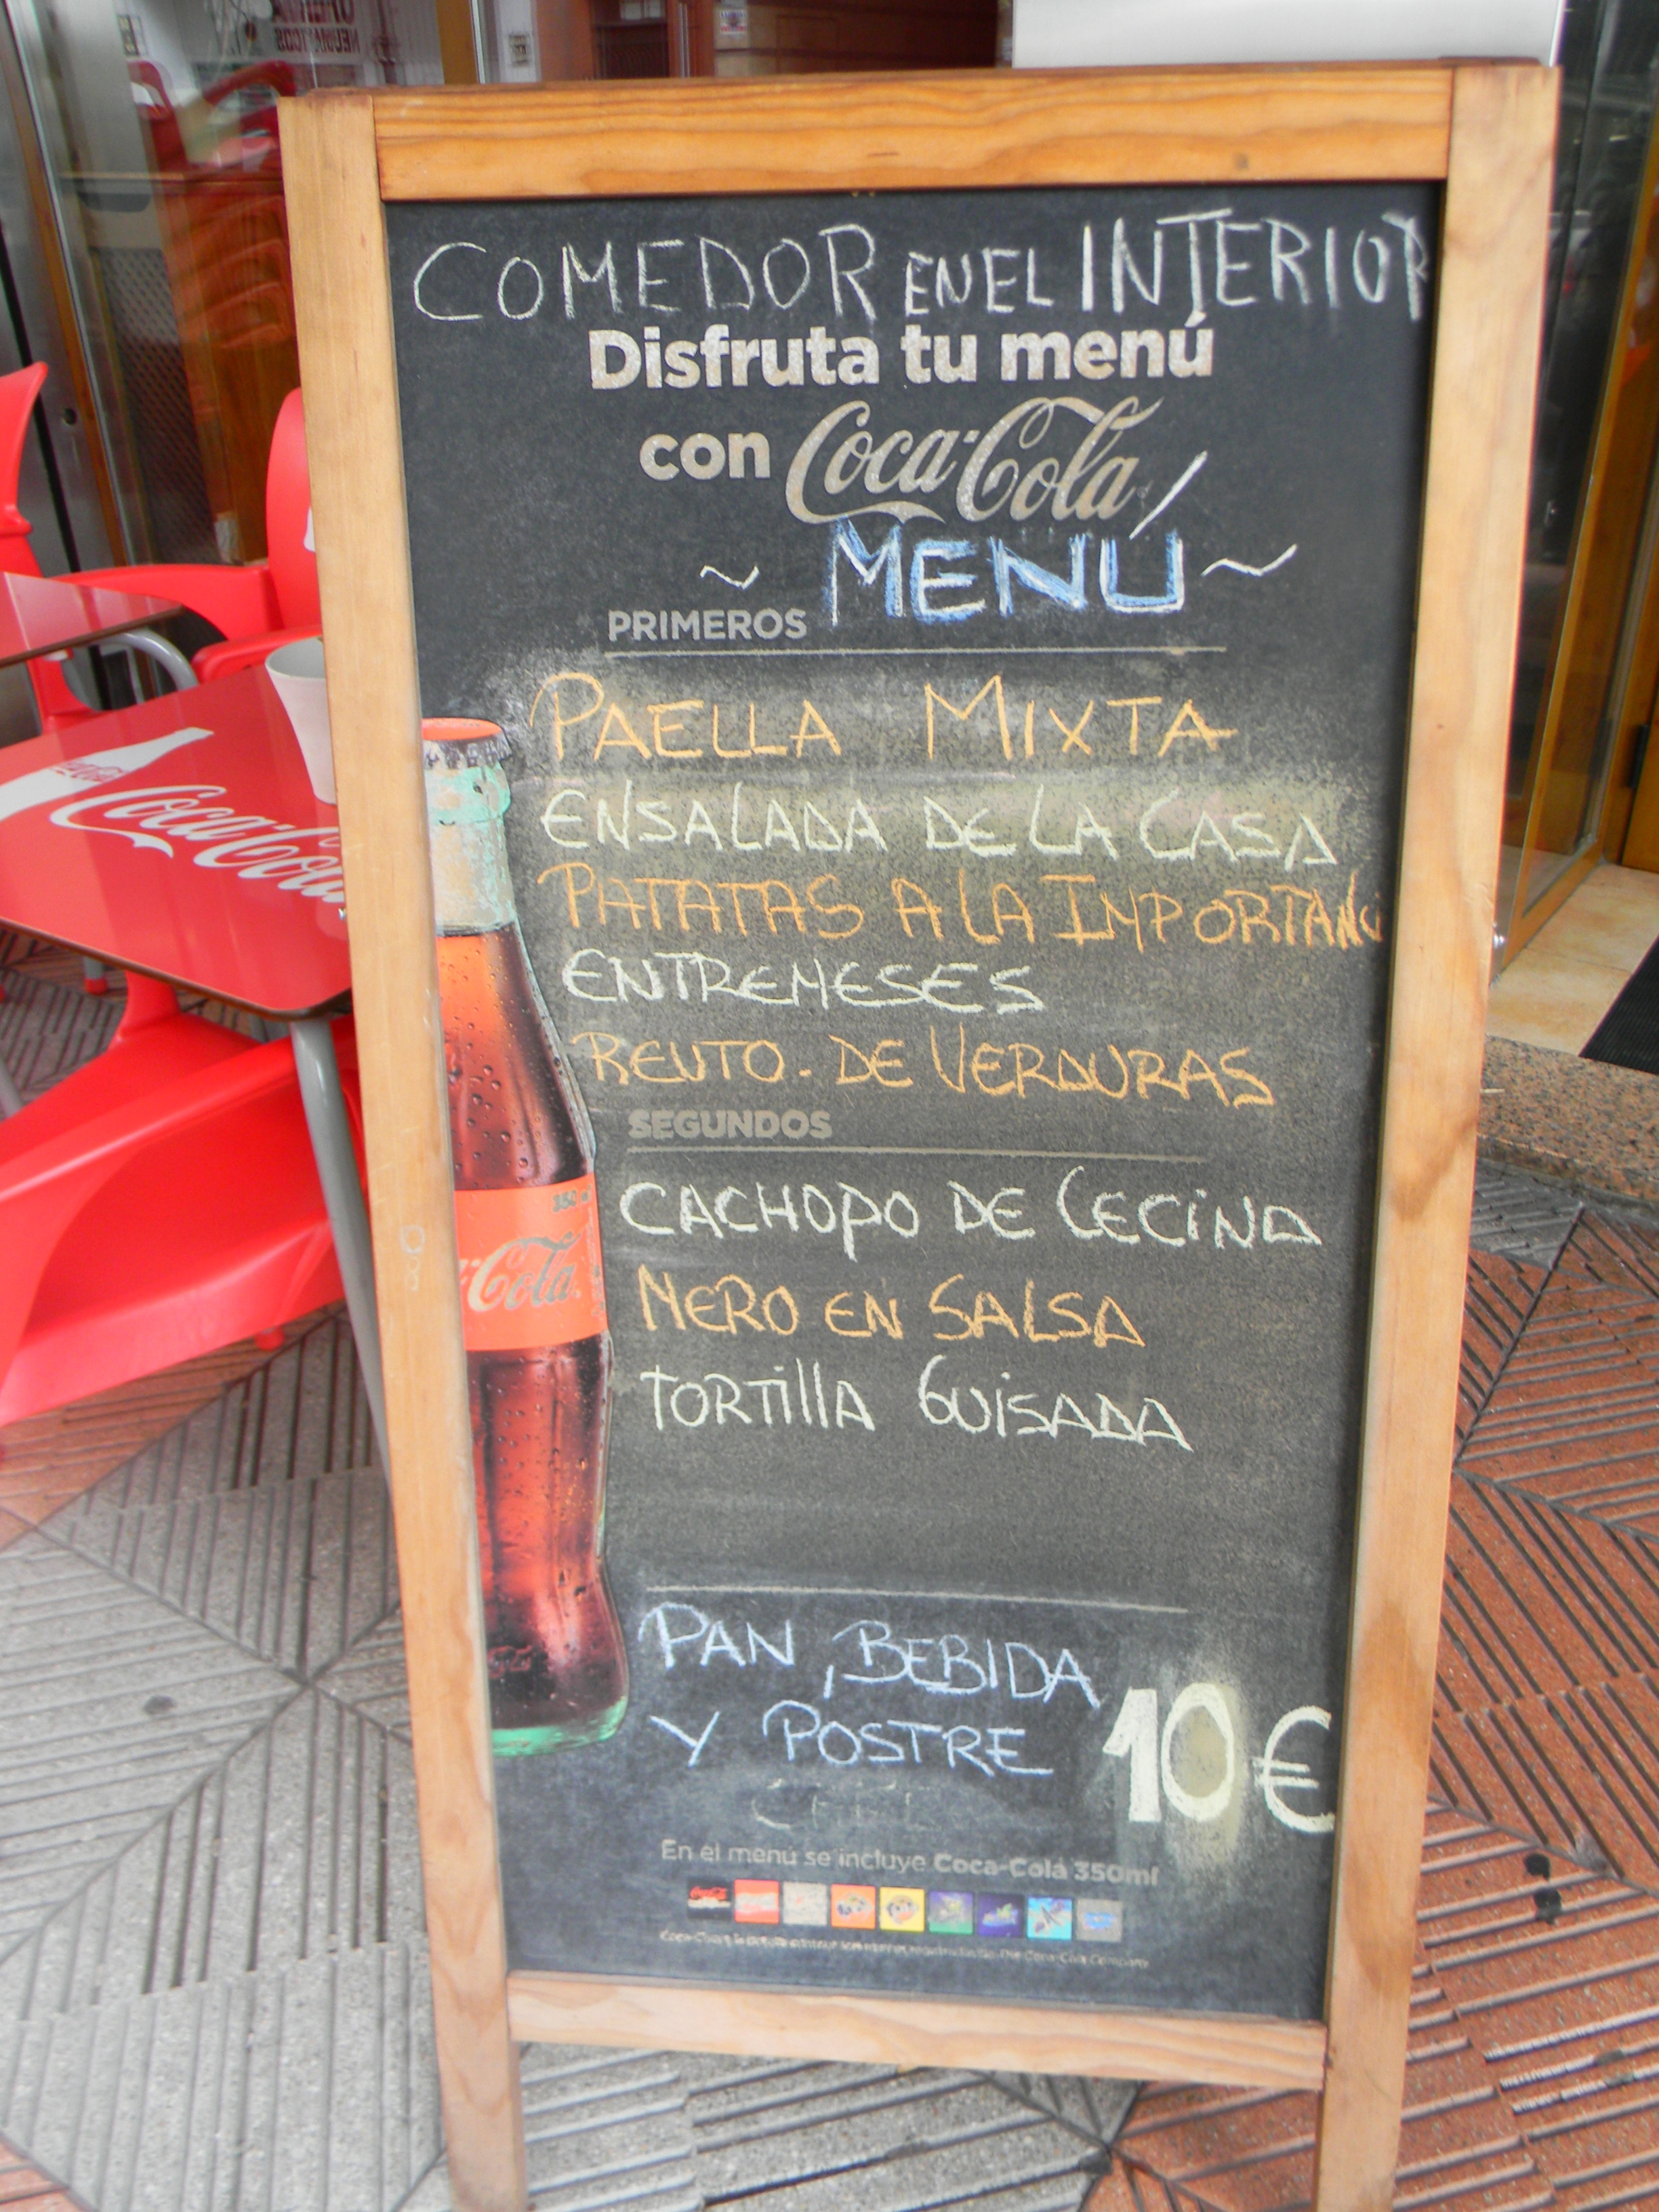 COMEDOR EN EL INTERIOR
Disfruta tu menú
con Coca-Cola
~ MENÚ ~
PRIMEROS
PAELLA MIXTA
ENSALADA DE LA CASA
PATATAS A LA IMPORTANCI
ENTREMESES
REVTO. DE VERDURAS
SEGUNDOS
CACHOPO DE CECINA
MERO EN SALSA
TORTILLA GUISADA
PAN, BEBIDA
Y POSTRE
10€
En el menú se incluye Coca-Cola 350ml
350 ml
Coca-Cola
Coca-Cola